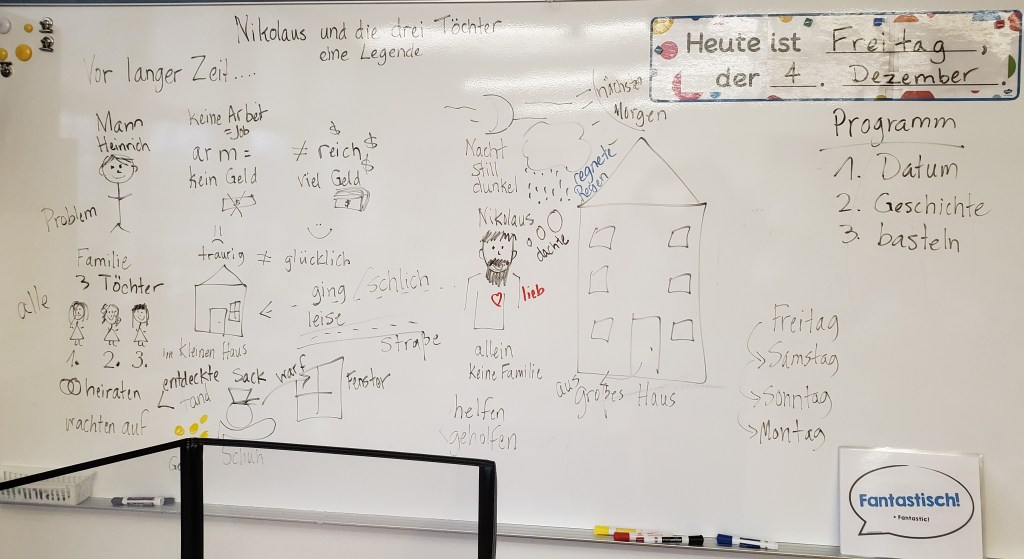 Nikolaus und die drei Töchter
eine Legende
Vor langer Zeit....
Heute ist Freitag,
der 4. Dezember.
Programm
1. Datum
2. Geschichte
3. basteln
Mann
Heinrich
Problem
keine Arbeit
=Job
arm =
kein Geld
≠ reich
$ $ $
viel Geld
traurig ≠ glücklich
Familie
3 Töchter
alle
1. 2. 3.
heiraten
wachten auf
im kleinen Haus
ging schlich
leise
Straße
entdeckte
fand
Sack
warf
Fenster
Schuh
Nacht
still
dunkel
regnete
Regen
Morgen
Nikolaus
dachte
lieb
allein
keine Familie
helfen
geholfen
aus
großes Haus
Freitag
Samstag
Sonntag
Montag
Fantastisch!
• Fantastic!